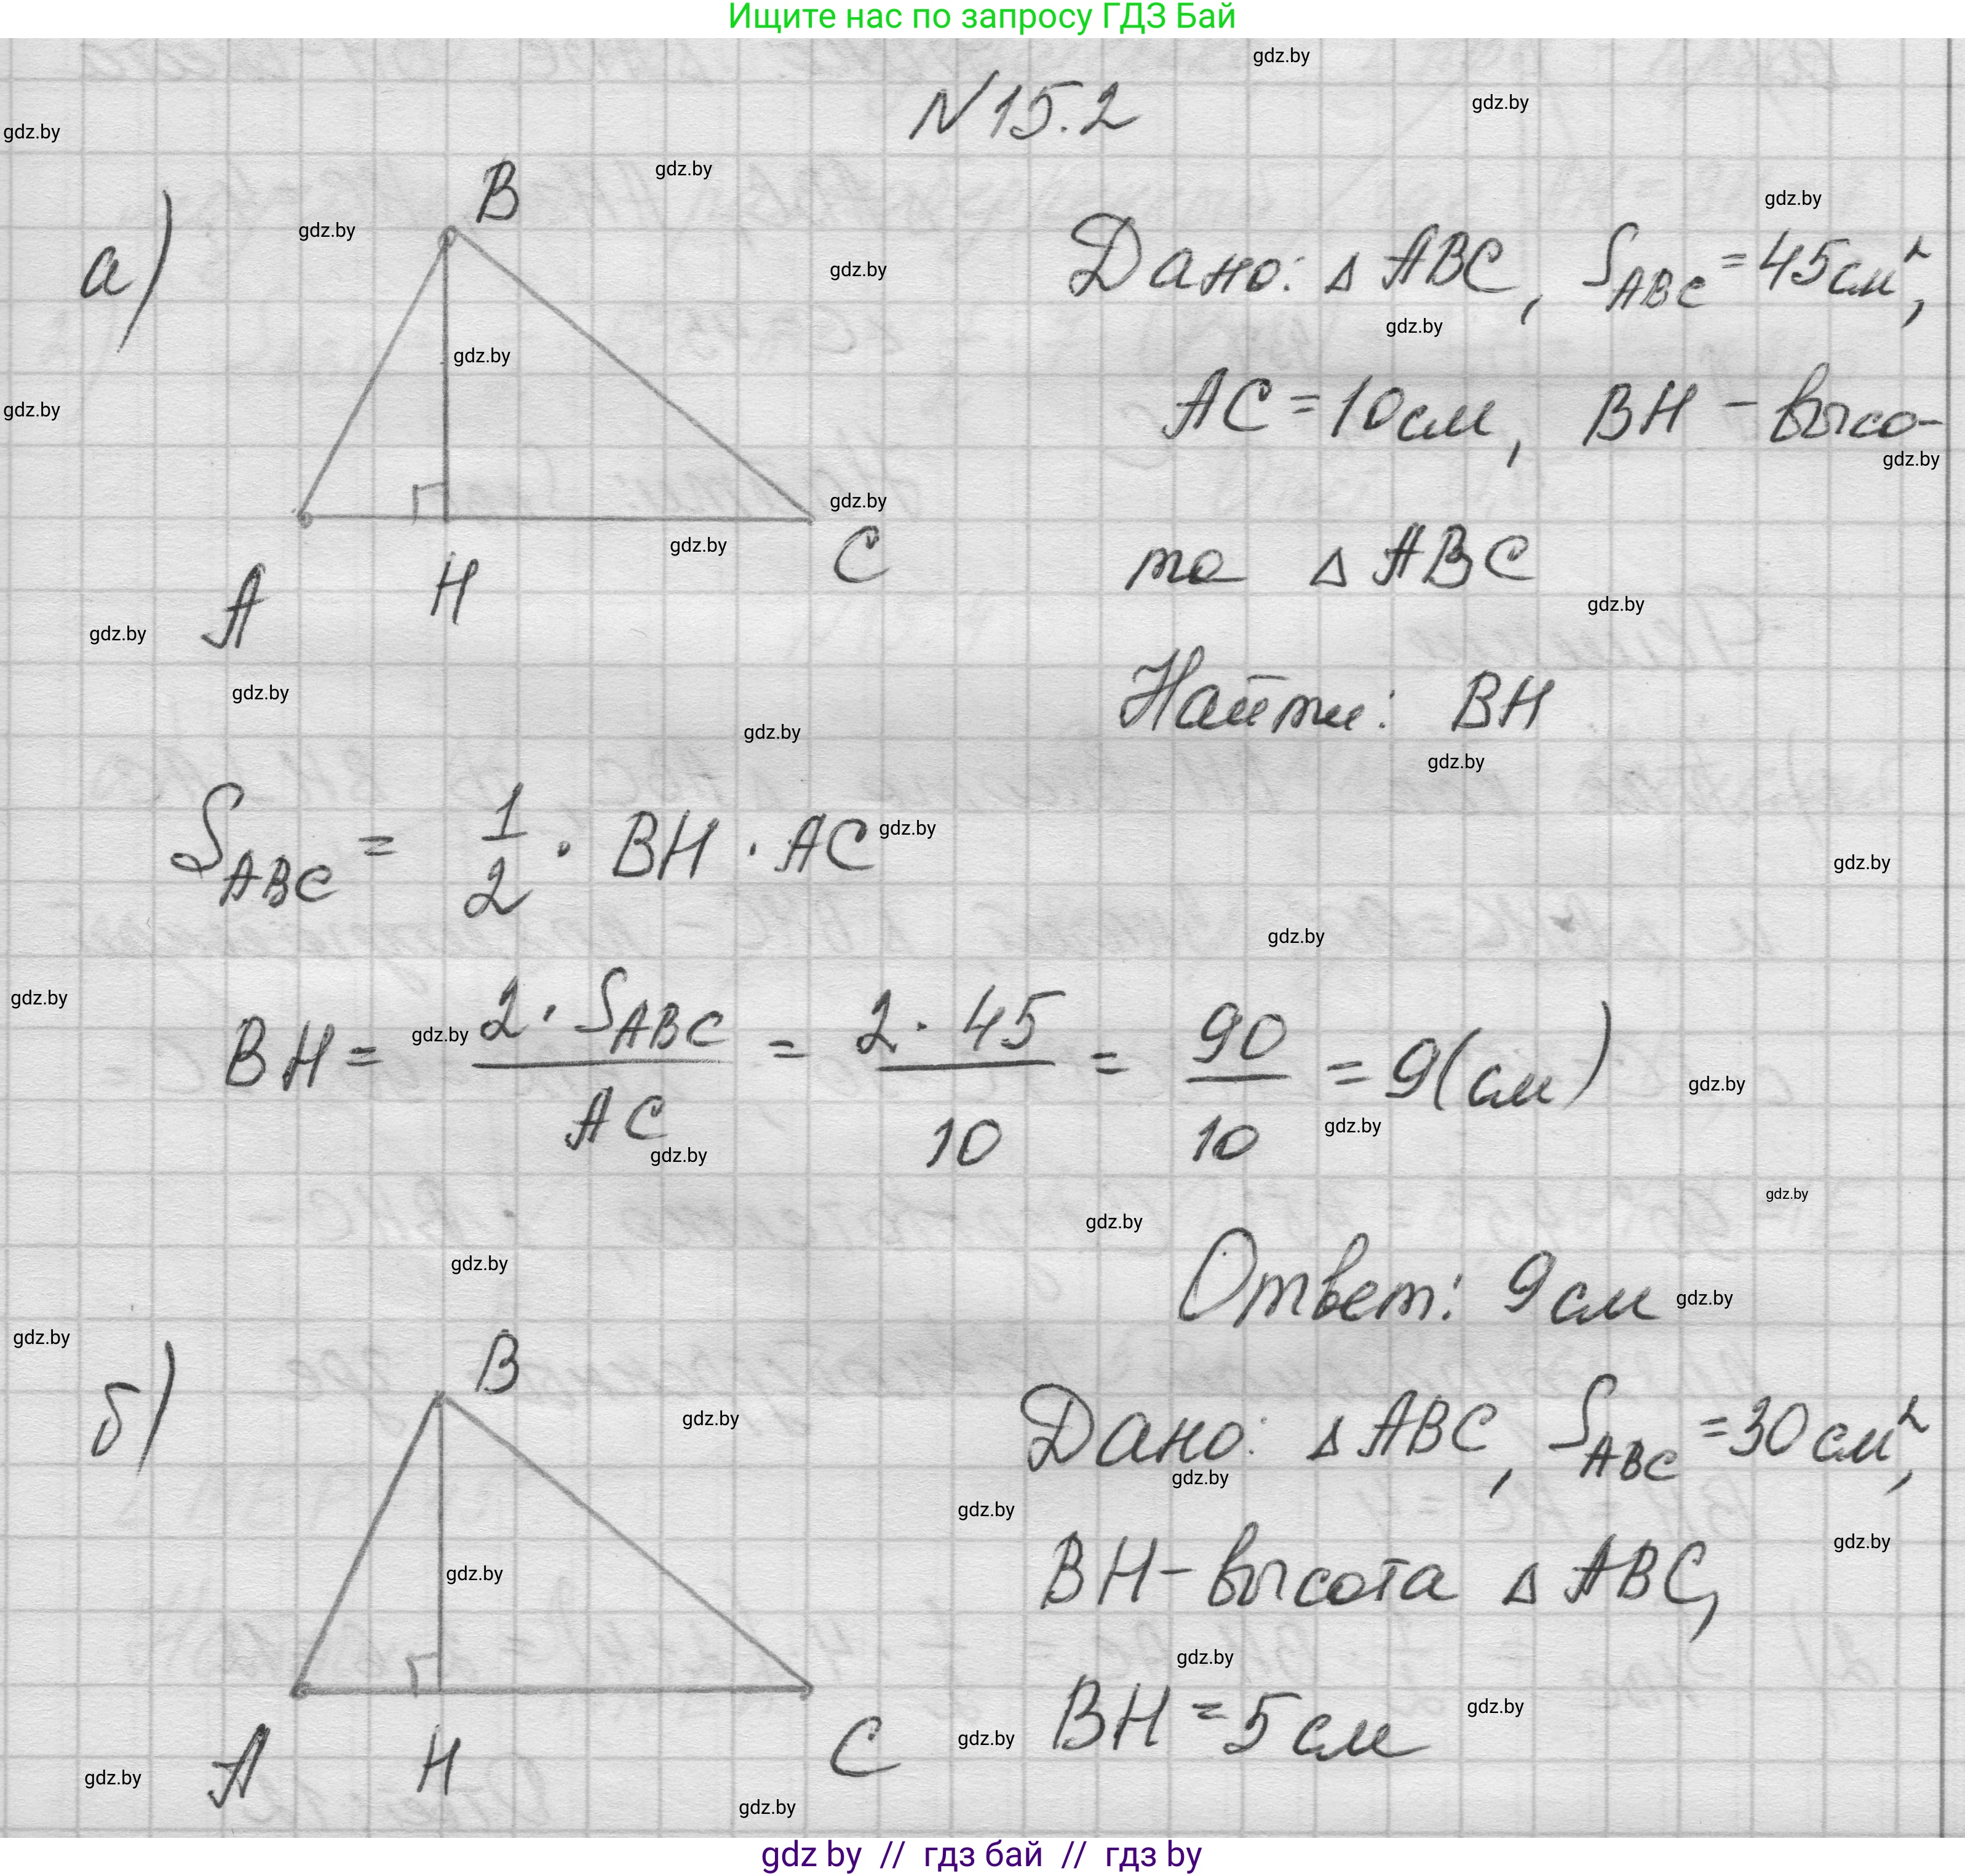 Ищите нас по запросу ГДЗ Бай
N 15.2
а)
B
A
H
C
Дано: △ ABC, S_ABC = 45 см²,
AC = 10 см, BH – высо-
та △ ABC
Найти: BH
S_ABC = 1/2 · BH · AC
BH = 2 · S_ABC / AC = 2 · 45 / 10 = 90 / 10 = 9 (см)
Ответ: 9 см
б)
B
A
H
C
Дано: △ ABC, S_ABC = 30 см²,
BH – высота △ ABC,
BH = 5 см
gdz.by
gdz by // гдз бай // гдз by